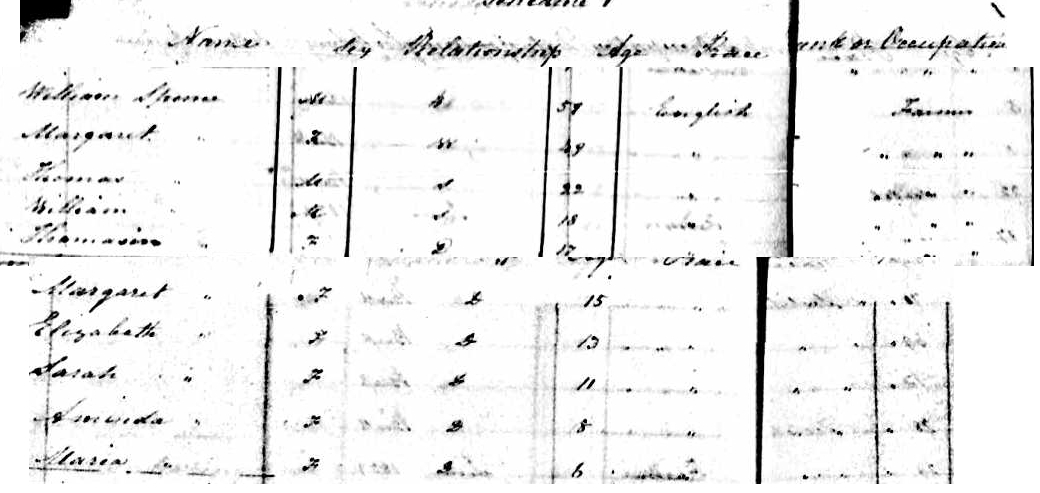 Schedule 1
Name Sex Relationship Age Race Rank or Occupation
" " "
William Spence M H 59 English Farmer
Margaret " F W 49 " " " "
Thomas " M S 22 " " " "
William M S 18 " " "
Thomasin " F D 17 " " "
Race
Margaret " F D 15 " "
Elizabeth " F D 13 " " " "
Sarah " F D 11 " " " "
Aminda " F D 8 " " "
Maria " F D 6 " " "